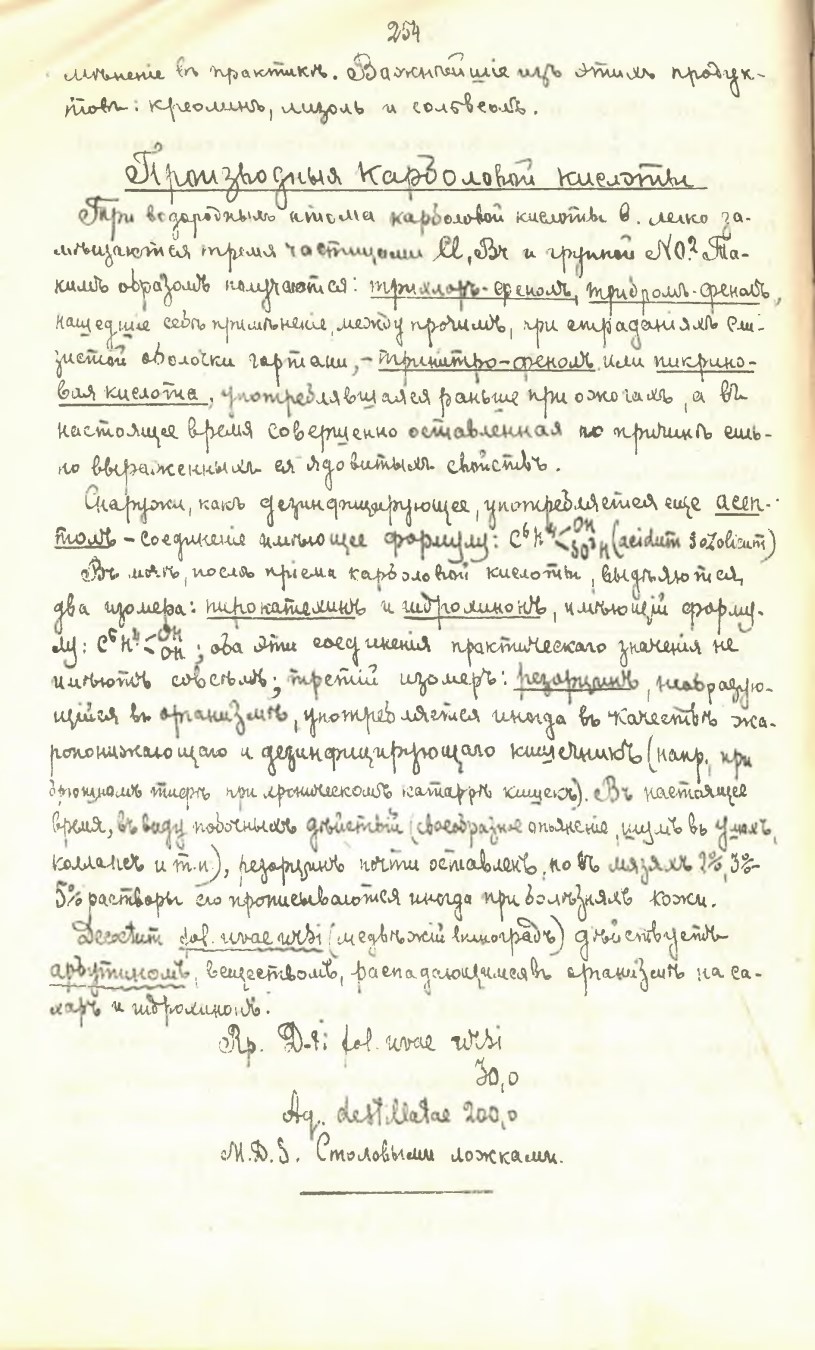 254
мѣненіе въ практикѣ. Важнѣйшіе изъ этихъ продук-
товъ: креолинъ, лизолъ и солвеолъ.
Производныя карболовой кислоты
Три водородныхъ атома карболовой кислоты в. легко за-
мѣщаются тремя частицами Cl, Br и группой NO². Та-
кимъ образомъ получаются: трихлоръ-фенолъ, трибромъ-фенолъ,
нашедшіе себѣ примѣненіе, между прочимъ, при страданіяхъ сли-
зистой оболочки гортани, - тринитро-фенолъ или пикрино-
вая кислота, употреблявшаяся раньше при ожогахъ, а въ
настоящее время совершенно оставленная по причинѣ силь-
но выраженныхъ ея ядовитыхъ свойствъ.
Снаружи, какъ дезинфицирующее, употребляется еще асеп-
толъ - соединеніе имѣющее формулу: C⁶H⁴<OH SO³H (acidum sozolicum)
Въ мочѣ, послѣ пріема карболовой кислоты, выдѣляются
два изомера: пирокатехинъ и гидрохинонъ, имѣющій форму-
лу: C⁶H⁴<OH OH; оба эти соединенія практическаго значенія не
имѣютъ совсѣмъ; третій изомеръ: резорцинъ, необразую-
щійся въ организмѣ, употребляется иногда въ качествѣ жа-
ропонижающаго и дезинфицирующаго кишечникъ (напр. при
брюшномъ тифѣ, при хроническомъ катаррѣ кишекъ). Въ настоящее
время, въ виду побочныхъ дѣйствій (своеобразное опьяненіе, шумъ въ ушахъ,
коллапсъ и т.п.), резорцинъ почти оставленъ, но въ мазяхъ 2%, 3%-
5% растворы его прописываются иногда при болѣзняхъ кожи.
Decoctum fol. uvae ursi (медвѣжій виноградъ) дѣйствуетъ
арбутиномъ, веществомъ, распадающимся въ организмѣ на са-
харъ и гидрохинонъ.
Rp. D-ti fol. uvae ursi
30,0
Aq. destillatae 200,0
M.D.S. Столовыми ложками.